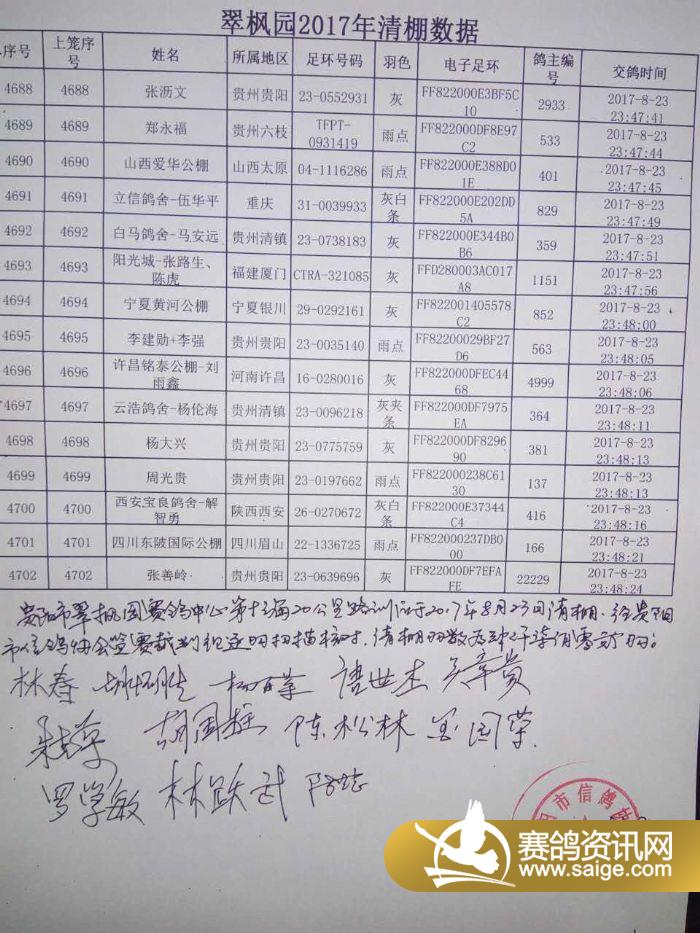 翠枫园2017年清棚数据
序号 上笼序号 姓名 所属地区 足环号码 羽色 电子足环 鸽主编号 交鸽时间
4688 4688 张沥文 贵州贵阳 23-0552931 灰 FF822000E3BF5C10 2933 2017-8-23 23:47:41
4689 4689 郑永福 贵州六枝 TFPT-0931419 雨点 FF822000DF8E97C2 533 2017-8-23 23:47:44
4690 4690 山西爱华公棚 山西太原 04-1116286 雨点 FF822000E388D01E 401 2017-8-23 23:47:45
4691 4691 立信鸽舍-伍华平 重庆 31-0039933 灰白条 FF822000E202DD5A 829 2017-8-23 23:47:49
4692 4692 白马鸽舍-马安远 贵州清镇 23-0738183 灰 FF822000E344B0B6 359 2017-8-23 23:47:51
4693 4693 阳光城-张路生、陈虎 福建厦门 CTRA-321085 灰 FFD280003AC017A8 1151 2017-8-23 23:47:56
4694 4694 宁夏黄河公棚 宁夏银川 29-0292161 灰 FF822001405578C2 852 2017-8-23 23:48:00
4695 4695 李建勋+李强 贵州贵阳 23-0035140 雨点 FF82200029BF27D6 563 2017-8-23 23:48:05
4696 4696 许昌铭泰公棚-刘雨鑫 河南许昌 16-0280016 灰 FF822000DFEC4468 4999 2017-8-23 23:48:06
4697 4697 云浩鸽舍-杨伦海 贵州清镇 23-0096218 灰夹条 FF822000DF7975EA 364 2017-8-23 23:48:11
4698 4698 杨大兴 贵州贵阳 23-0775759 灰 FF822000DF829690 381 2017-8-23 23:48:13
4699 4699 周光贵 贵州贵阳 23-0197662 雨点 FF822000238C6130 137 2017-8-23 23:48:13
4700 4700 西安宝良鸽舍-解智勇 陕西西安 26-0270672 灰白条 FF822000E37344C4 416 2017-8-23 23:48:16
4701 4701 四川东陂国际公棚 四川眉山 22-1336725 雨点 FF822000237DB000 166 2017-8-23 23:48:21
4702 4702 张善岭 贵州贵阳 23-0639696 灰 FF822000DF7EFAFE 22229 2017-8-23 23:48:24
贵阳市翠枫园赛鸽中心第十三届20公里路训 于2017年8月23日清棚.经贵阳
市信鸽协会 赛 扫描核对,清棚羽数为 仟柒佰零贰羽。
林春 唐世杰
胡国 陈松林 国荣
罗学敏 林跃武
市信鸽
赛鸽资讯网
www.saige.com